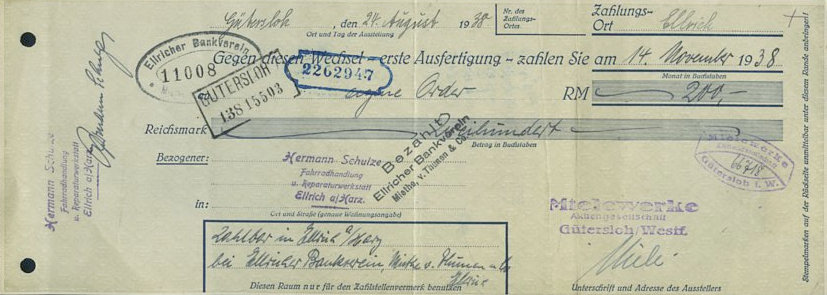 Gütersloh, den 24. August 1938
Ort und Tag der Ausstellung
Nr. des Zahlungs-Ortes
Zahlungs-Ort Ellrich
Gegen diesen Wechsel – erste Ausfertigung – zahlen Sie am 14. November 1938.
Monat in Buchstaben
Ellricher Bankverein
11008
GÜTERSLOH
138 15503
2262947
eigene Order
RM 200,-
Reichsmark Zweihundert
Betrag in Buchstaben
Bezahlt
Ellricher Bankverein
Miethe, v. Thümen & Co.
Bezogener:
Hermann Schulze
Fahrradhandlung
u. Reparaturwerkstatt
Ellrich a/Harz.
in:
Ort und Straße (genaue Wohnungsangabe)
Zahlbar in Ellrich a/Harz
bei Ellricher Bankverein, Miethe v. Thümen u. Co
Ellrich
Diesen Raum nur für den Zahlstellenvermerk benutzen
Mielewerke
Gütersloh i. W.
Mielewerke
Aktiengesellschaft
Gütersloh/Westf.
Miele
Unterschrift und Adresse des Ausstellers
Hermann Schulze
Fahrradhandlung
u. Reparaturwerkstatt
Ellrich a/Harz.
Hermann Schulze
Stempelmarken auf der Rückseite unmittelbar unter diesem Rande anbringen!